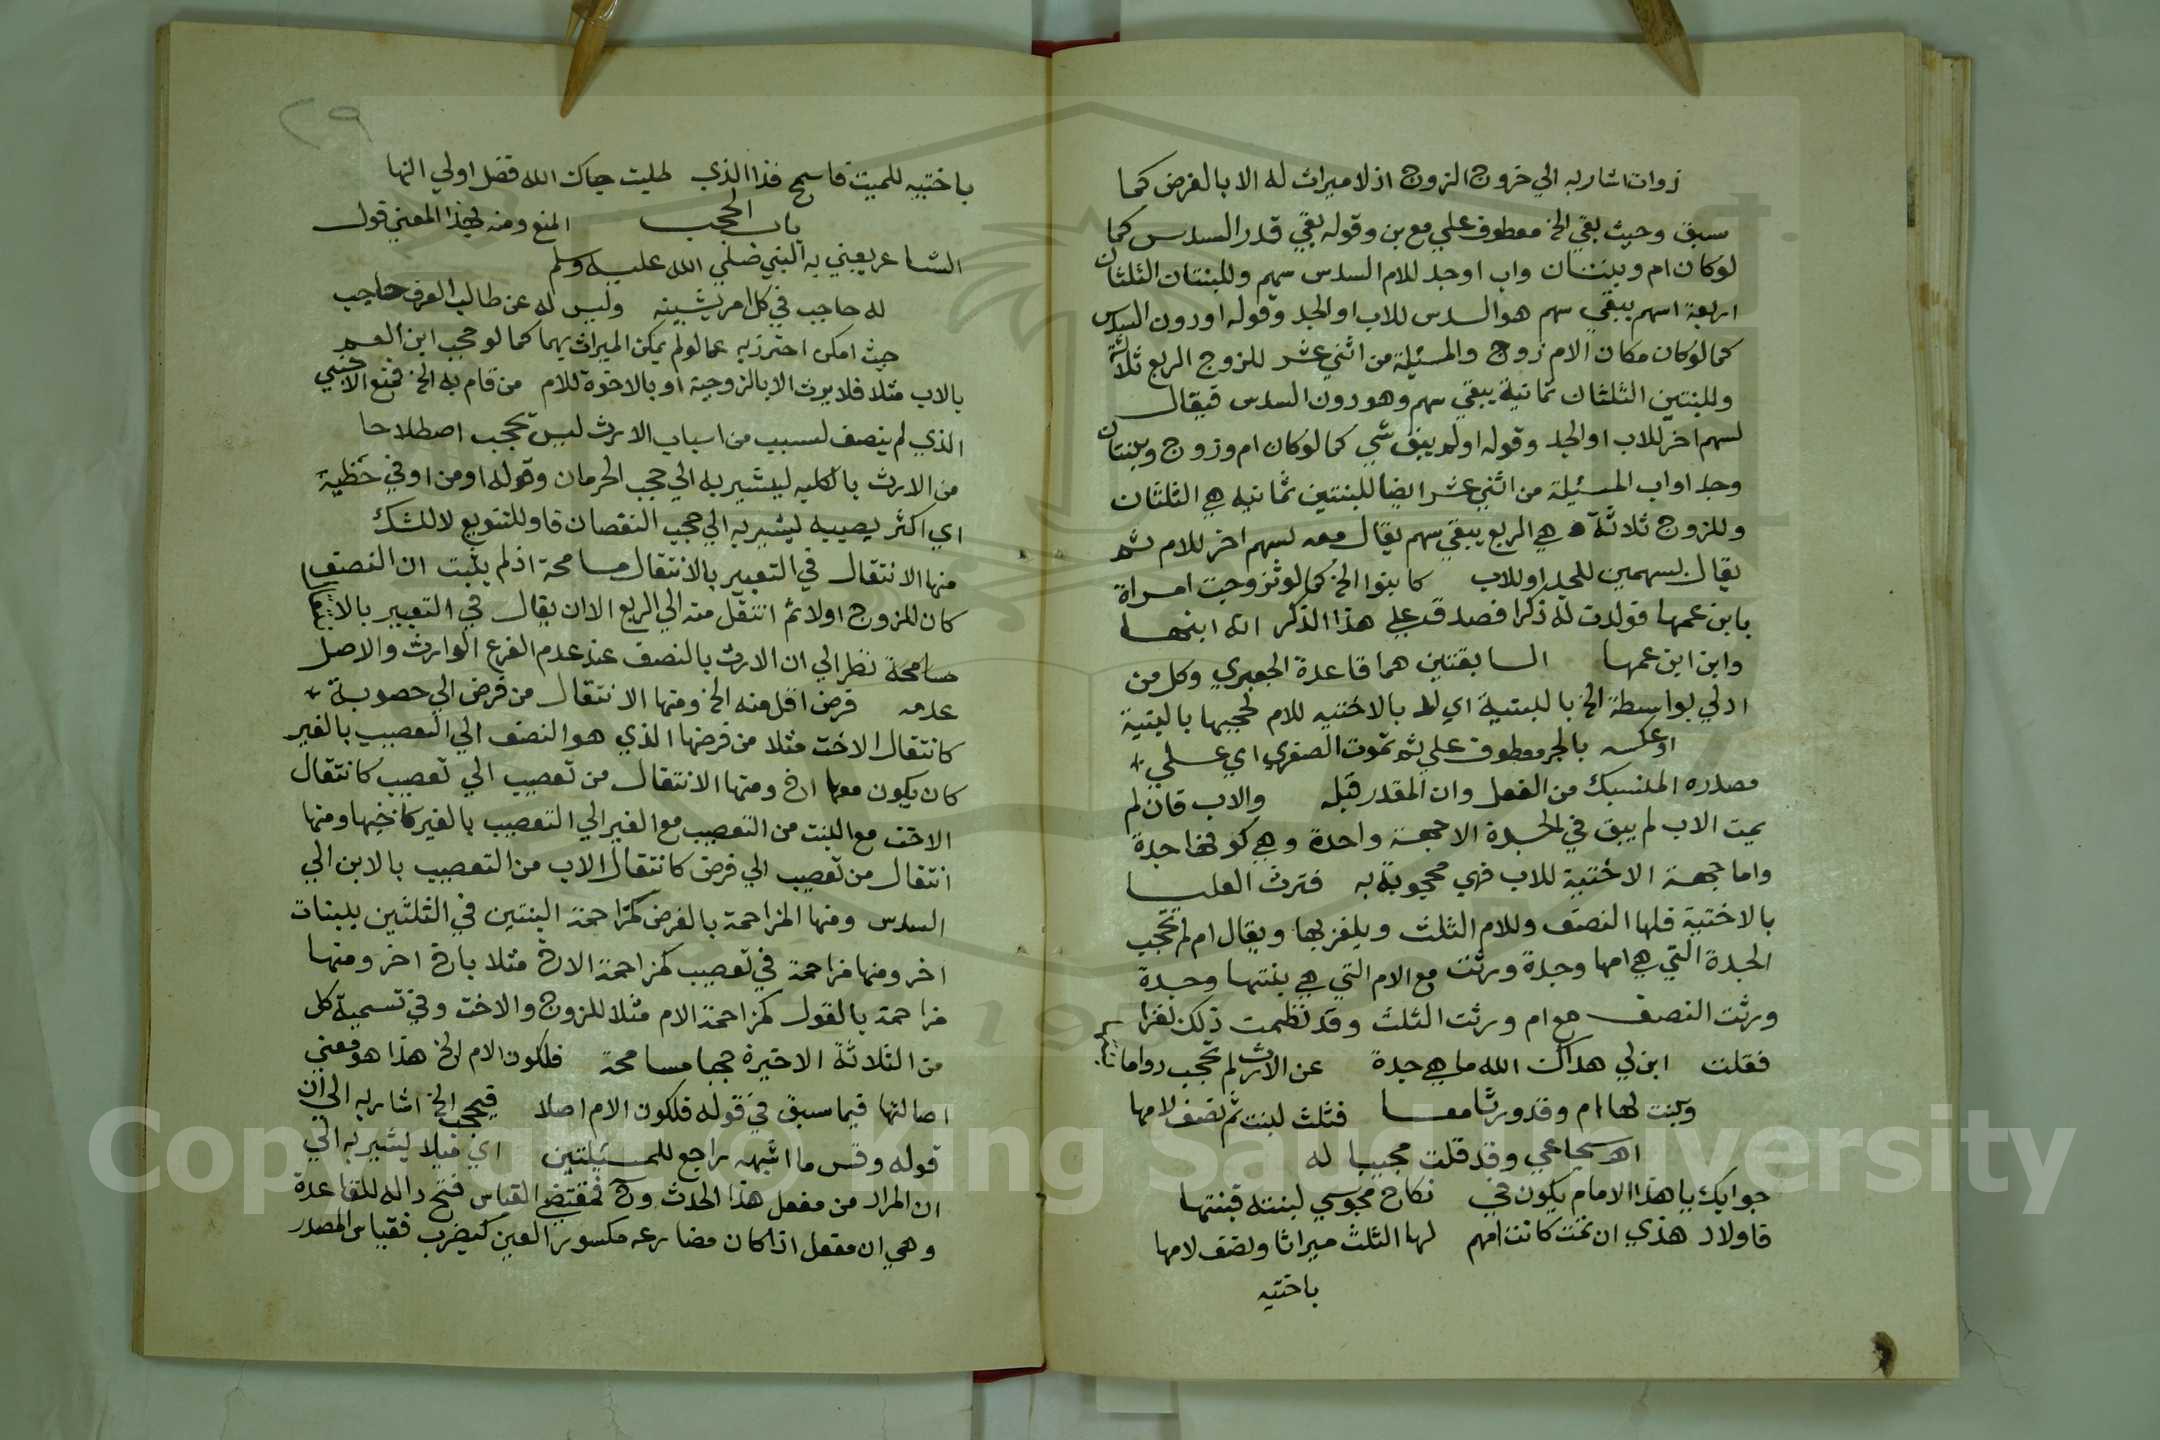 زوات اشار به الي خروج الزوج اذ لا ميراث له الا بالفرض كما
سبق وحيث بقي الخ معطوف علي مع بن وقوله بقي قدر السدس كما
لوكان ام وبنتان واب اوجد للام السدس سهم وللبنتان الثلثان
اربعة اسهم يبقي سهم هو السدس للاب او الجد وقوله او دون السدس
كما لوكان مكان الام زوج والمسئلة من اثني عشر للزوج الربع ثلاثة
وللبنتين الثلثان ثمانية يبقي سهم وهو دون السدس فيقال
لسهم اخر للاب او الجد وقوله او لم يبق شي كما لوكان ام وزوج وبنتان
وجد او اب المسئلة من اثني عشر ايضا للبنتين ثمانيه هي الثلثان
وللزوج ثلاثة هي الربع يبقي سهم يقال معه لسهم اخر للام ثم
يقال بسهمين للجد او للاب كابنوا الخ كما لو تزوجت امراة
بابن عمها فولدت له ذكرا فصدق علي هذا الذكر انه ابنها
وابن ابن عمها السابقتين هما قاعدة الجعبري وكل من
ادلي بواسطة الخ بالبنتية اي لا بالاختيه للام لحجبها بالبنتية
او عكسه بالجر معطوف علي ثم تموت الصغري اي علي
مصدره المنسبك من الفعل وان المقدر قبله والاب فان لم
يمت الاب لم يبق في الجدة الا جهة واحدة وهي كونها جدة
واما جهة الاختية للاب فهي محجوبة به فترث العليا
بالاختية فلها النصف وللام الثلث ويلغز بها ويقال ام لم تحجب
الجدة التي هي امها وجدة ورثت مع الام التي هي بنتها وجدة
ورثت النصف مع ام ورثت الثلث وقد نظمت ذلك لغزا
فقلت ابن لي هداك الله ما هي جدة عن الارث لم تحجب دواما
وبنت لها ام وقد ورثا معا فثلث لبنت ثم نصف لامها
اهـ سجاعي وقد قلت مجيبا له
جوابك يا هذا الامام يكون في نكاح مجوسي لبنته فبنتها
فاولاد هذي ان تمت كانت امهم لها الثلث ميراثا ونصف لامها
باختيه
٢٩
باختيه للميت فاسمح فذا الذي طلبت حباك الله فضل اولي النها
باب الحجب المنع ومنه بهذا المعني قول
الشاعر يعني به النبي صلي الله عليه وسلم
له حاجب في كل امر يشينه وليس له عن طالب العرف حاجب
حيث امكن احترز به عما لو لم يمكن الميراث بهما كما لو حجب ابن العم
بالاب مثلا فلا يرث الا بالزوجية او بالاخوة للام من قام به الخ فمنع الاجنبي
الذي لم يتصف لسبب من اسباب الارث ليس بحجب اصطلاحا
من الارث بالكليه ليشير به الي حجب الحرمان وقوله او من اوفي حظيه
اي اكثر نصيبيه ليشير به الي حجب النقصان فاو للتنويع لا للشك
منها الانتقال في التعبير بالانتقال مسامحة اذ لم يثبت ان النصف
كان للزوج اولا ثم انتقل منه الي الربع الا ان يقال في التعبير بالا
مسامحة نظرا الي ان الارث بالنصف عند عدم الفرع الوارث والاصل
عدمه فرض اقل منه الخ ومنها الانتقال من فرض الي عصوبة
كانتقال الاخت مثلا من فرضها الذي هو النصف الي التعصيب بالغير
كان يكون معها اخ ومنها الانتقال من تعصيب الي تعصيب كانتقال
الاخت مع البنت من التعصيب مع الغير الي التعصيب بالغير كاخيها ومنها
انتقال من تعصيب الي فرض كانتقال الاب من التعصيب بالابن الي
السدس ومنها المزاحمة بالفرض كمزاحمة البنتين في الثلثين ببنات
اخر ومنها مزاحمة في تعصيب كمزاحمة الاخ مثلا باخ اخر ومنها
مزاحمة بالعول كمزاحمة الام مثلا للزوج والاخت وفي تسمية كل
من الثلاثة الاخيرة حجبا مسامحة فلكون الام الخ هذا هو معني
اصالتها فيما سبق في قوله فلكون الام اصلا فيحجب الخ اشار به الي ان
قوله وقس ما اشبهه راجع للمسئلتين اي ميلا يشير به الي
ان المراد من مفعل هذا الحدث وح فمقتضي القياس فتح داله للقاعدة
وهي ان مفعل اذا كان مضارعه مكسور العين كيضرب فقياس المصدر